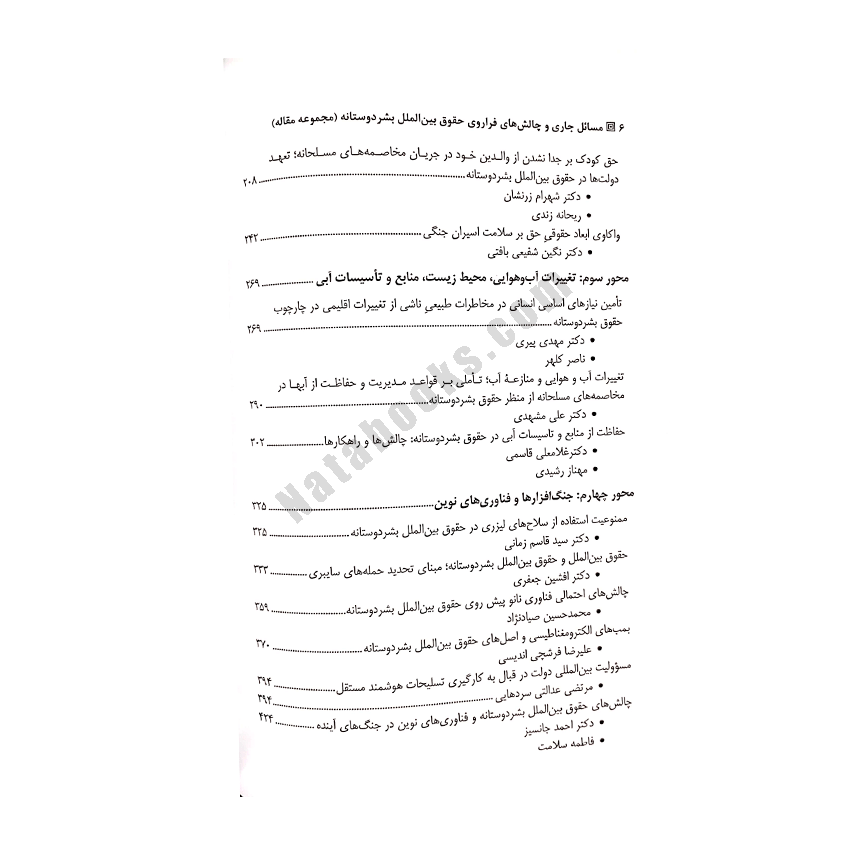 ۶ مسائل جاری و چالش‌های فراروی حقوق بین‌الملل بشردوستانه (مجموعه مقاله)
حق کودک بر جدا نشدن از والدین خود در جریان مخاصمه‌های مسلحانه؛ تعهد
دولت‌ها در حقوق بین‌الملل بشردوستانه ........ ۲۰۸
• دکتر شهرام زرنشان
• ریحانه زندی
واکاوی ابعاد حقوقیِ حق بر سلامت اسیران جنگی ........ ۲۴۲
• دکتر نگین شفیعی بافتی
محور سوم: تغییرات آب‌وهوایی، محیط زیست، منابع و تأسیسات آبی ........ ۲۶۹
تأمین نیازهای اساسی انسانی در مخاطرات طبیعیِ ناشی از تغییرات اقلیمی در چارچوب
حقوق بشردوستانه ........ ۲۶۹
• دکتر مهدی پیری
• ناصر کلهر
تغییرات آب و هوایی و منازعهٔ آب؛ تأملی بر قواعد مدیریت و حفاظت از آبها در
مخاصمه‌های مسلحانه از منظر حقوق بشردوستانه ........ ۲۹۰
• دکتر علی مشهدی
حفاظت از منابع و تاسیسات آبی در حقوق بشردوستانه: چالش‌ها و راهکارها ........ ۳۰۲
• دکترغلامعلی قاسمی
• مهناز رشیدی
محور چهارم: جنگ‌افزارها و فناوری‌های نوین ........ ۳۲۵
ممنوعیت استفاده از سلاح‌های لیزری در حقوق بین‌الملل بشردوستانه ........ ۳۲۵
• دکتر سید قاسم زمانی
حقوق بین‌الملل و حقوق بین‌الملل بشردوستانه؛ مبنای تحدید حمله‌های سایبری ........ ۳۳۳
• دکتر افشین جعفری
چالش‌های احتمالی فناوری نانو پیش روی حقوق بین‌الملل بشردوستانه ........ ۳۵۹
• محمدحسین صیادنژاد
بمب‌های الکترومغناطیسی و اصل‌های حقوق بین‌الملل بشردوستانه ........ ۳۷۰
• علیرضا فرشچی اندیسی
مسؤولیت بین‌المللی دولت در قبال به کارگیری تسلیحات هوشمند مستقل ........ ۳۹۴
• مرتضی عدالتی سردهایی ........ ۳۹۴
چالش‌های حقوق بین‌الملل بشردوستانه و فناوری‌های نوین در جنگ‌های آینده ........ ۴۲۴
• دکتر احمد جانسیز
• فاطمه سلامت
Natabooks.com